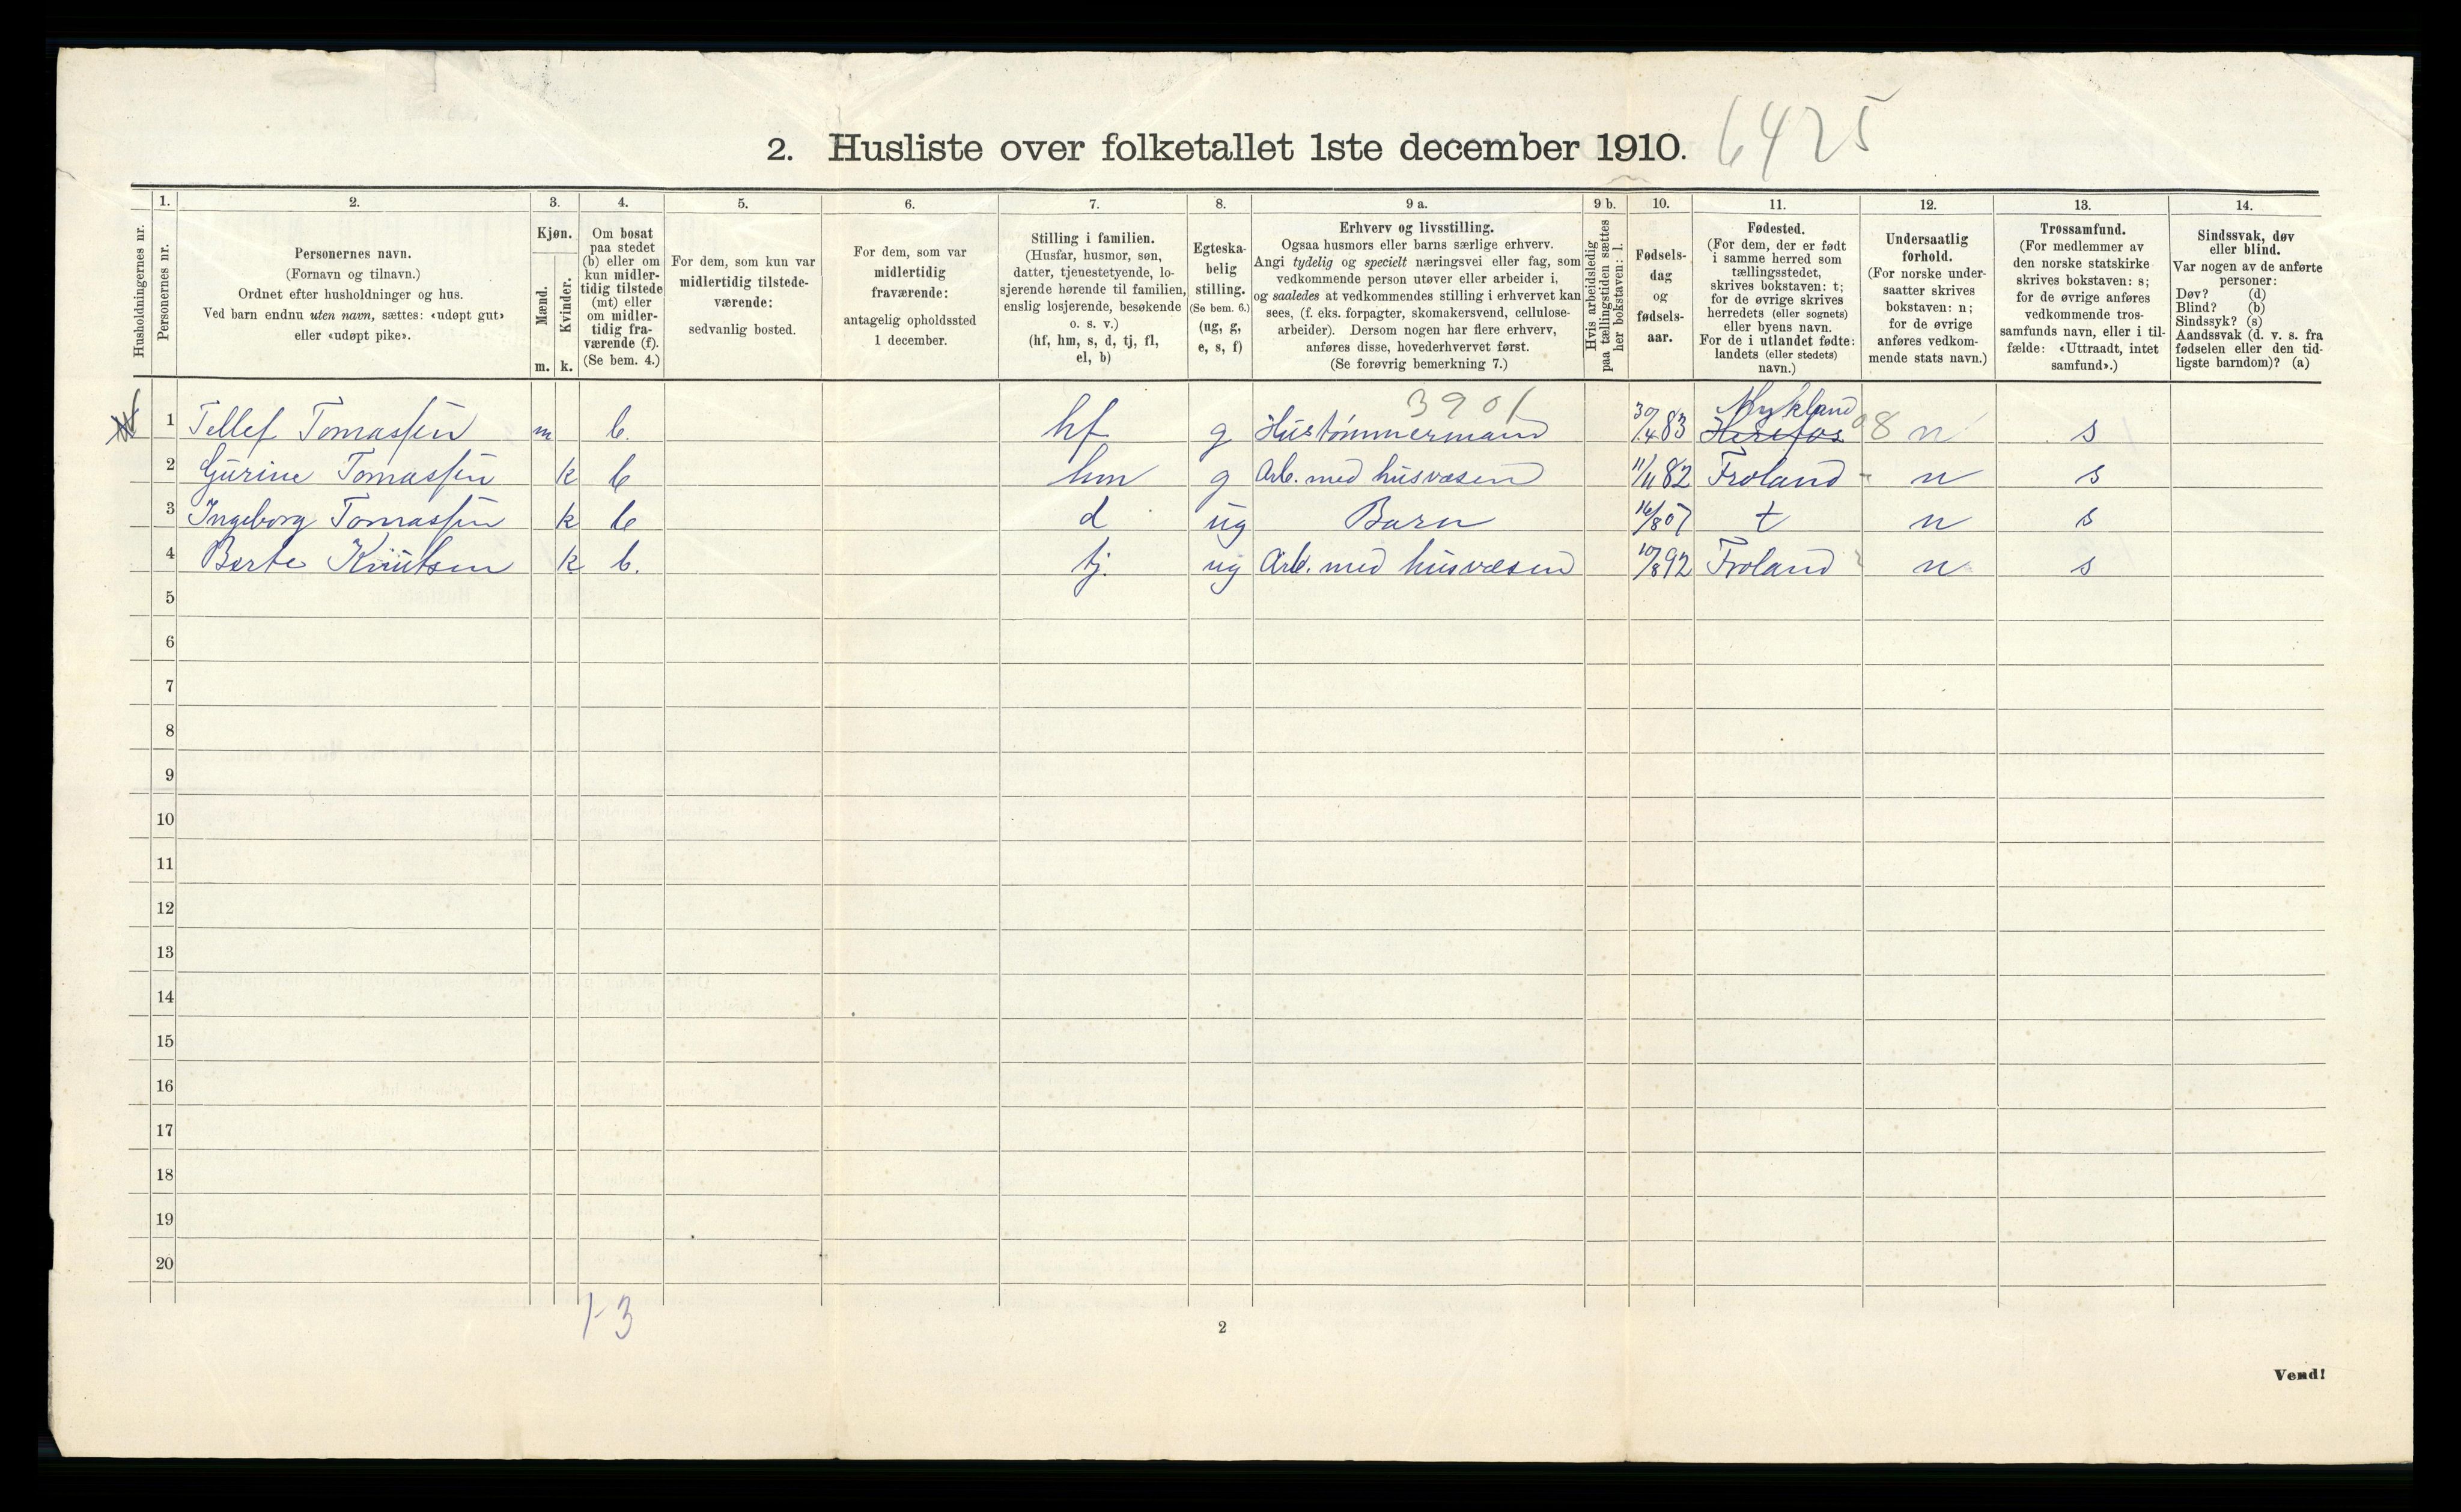 2. Husliste over folketallet 1ste december 1910. 6425
1. 2. 3. 4. 5. 6. 7. 8. 9 a. 9 b. 10. 11. 12. 13. 14.
Husholdningernes nr.
Personernes nr.
Personernes navn.
(Fornavn og tilnavn.)
Ordnet efter husholdninger og hus.
Ved barn endnu uten navn, sættes: «udøpt gut»
eller «udøpt pike».
Kjøn.
Mænd.
Kvinder.
m. k.
Om bosat
paa stedet
(b) eller om
kun midler-
tidig tilstede
(mt) eller
om midler-
tidig fra-
værende (f).
(Se bem. 4.)
For dem, som kun var
midlertidig tilstede-
værende:
sedvanlig bosted.
For dem, som var
midlertidig
fraværende:
antagelig opholdssted
1 december.
Stilling i familien.
(Husfar, husmor, søn,
datter, tjenestetyende, lo-
sjerende hørende til familien,
enslig losjerende, besøkende
o. s. v.)
(hf, hm, s, d, tj, fl,
el, b)
Egteska-
belig
stilling.
(Se bem. 6.)
(ug, g,
e, s, f)
Erhverv og livsstilling.
Ogsaa husmors eller barns særlige erhverv.
Angi tydelig og specielt næringsvei eller fag, som
vedkommende person utøver eller arbeider i,
og saaledes at vedkommendes stilling i erhvervet kan
sees, (f. eks. forpagter, skomakersvend, cellulose-
arbeider). Dersom nogen har flere erhverv,
anføres disse, hovederhvervet først.
(Se forøvrig bemerkning 7.)
Hvis arbeidsledig
paa tællingstiden sættes
her bokstaven: l.
Fødsels-
dag
og
fødsels-
aar.
Fødested.
(For dem, der er født
i samme herred som
tællingsstedet,
skrives bokstaven: t;
for de øvrige skrives
herredets (eller sognets)
eller byens navn.
For de i utlandet fødte:
landets (eller stedets)
navn.)
Undersaatlig
forhold.
(For norske under-
saatter skrives
bokstaven: n;
for de øvrige
anføres vedkom-
mende stats navn.)
Trossamfund.
(For medlemmer av
den norske statskirke
skrives bokstaven: s;
for de øvrige anføres
vedkommende tros-
samfunds navn, eller i til-
fælde: «Uttraadt, intet
samfund».)
Sindssvak, døv
eller blind.
Var nogen av de anførte
personer:
Døv? (d)
Blind? (b)
Sindssyk? (s)
Aandssvak (d. v. s. fra
fødselen eller den tid-
ligste barndom)? (a)
3901 Mykland
1 Tellef Tomassen m b. hf g Hustømmermand 30/4 83 Herefos 08 n s
2 Gurine Tomassen k b hm g Arb. med husvæsen 11/11 82 Froland - n s
3 Ingeborg Tomassen k b d ug Barn 16/8 07 t n s
4 Berte Knutsen k b. tj. ug Arb. med husvæsen 10/8 92 Froland n s
5
6
7
8
9
10
11
12
13
14
15
16
17
18
19
20
1-3
2
Vend!